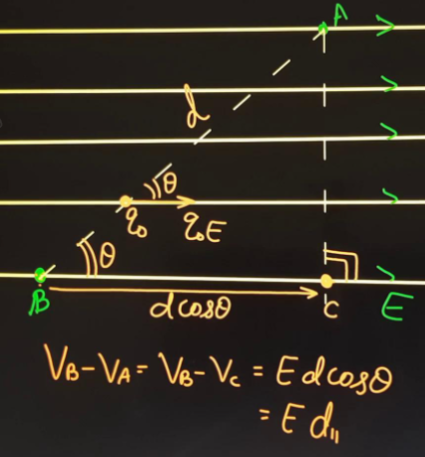 A
d
θ
q₀ q₀E
θ
B d cosθ C E
V_B − V_A = V_B − V_C = E d cosθ
= E d_∥